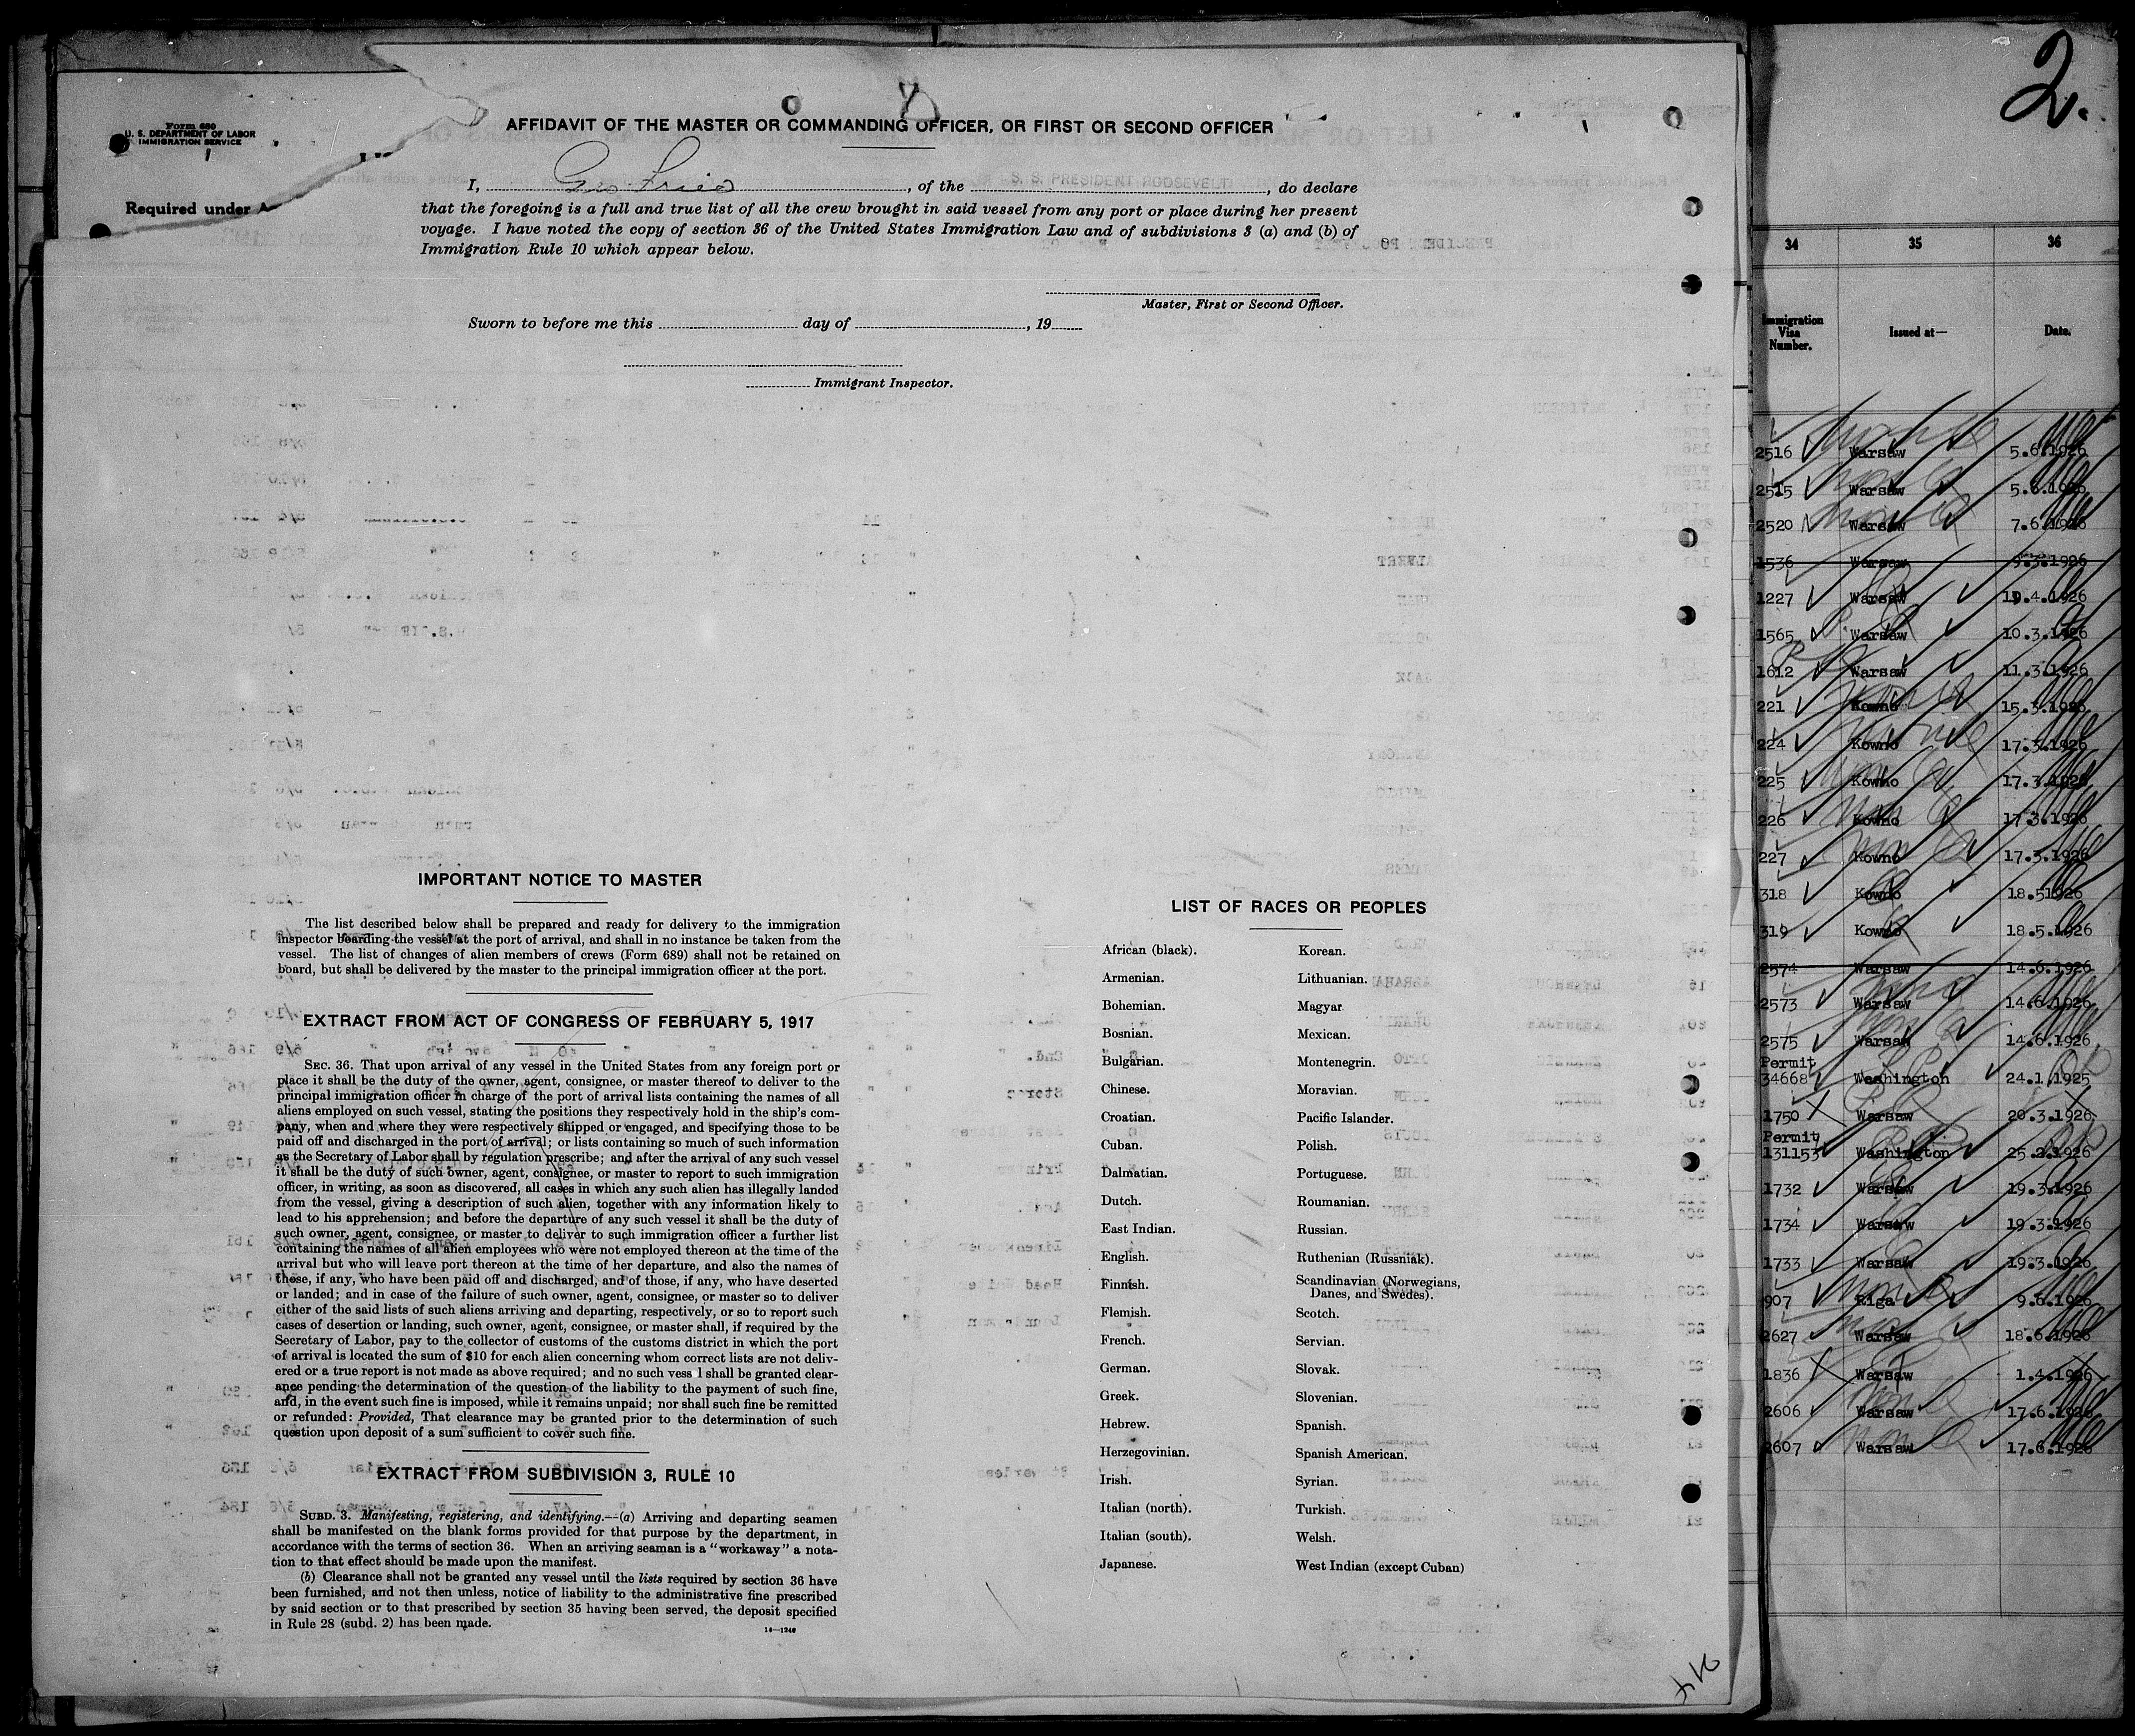 Form 680
U. S. DEPARTMENT OF LABOR
IMMIGRATION SERVICE
Required under A
AFFIDAVIT OF THE MASTER OR COMMANDING OFFICER, OR FIRST OR SECOND OFFICER
I, Geo. Fried, of the S. S. PRESIDENT ROOSEVELT, do declare
that the foregoing is a full and true list of all the crew brought in said vessel from any port or place during her present
voyage. I have noted the copy of section 36 of the United States Immigration Law and of subdivisions 3 (a) and (b) of
Immigration Rule 10 which appear below.
Master, First or Second Officer.
Sworn to before me this day of , 19
Immigrant Inspector.
IMPORTANT NOTICE TO MASTER
The list described below shall be prepared and ready for delivery to the immigration
inspector boarding the vessel at the port of arrival, and shall in no instance be taken from the
vessel. The list of changes of alien members of crews (Form 689) shall not be retained on
board, but shall be delivered by the master to the principal immigration officer at the port.
EXTRACT FROM ACT OF CONGRESS OF FEBRUARY 5, 1917
SEC. 36. That upon arrival of any vessel in the United States from any foreign port or
place it shall be the duty of the owner, agent, consignee, or master thereof to deliver to the
principal immigration officer in charge of the port of arrival lists containing the names of all
aliens employed on such vessel, stating the positions they respectively hold in the ship's com-
pany, when and where they were respectively shipped or engaged, and specifying those to be
paid off and discharged in the port of arrival; or lists containing so much of such information
as the Secretary of Labor shall by regulation prescribe; and after the arrival of any such vessel
it shall be the duty of such owner, agent, consignee, or master to report to such immigration
officer, in writing, as soon as discovered, all cases in which any such alien has illegally landed
from the vessel, giving a description of such alien, together with any information likely to
lead to his apprehension; and before the departure of any such vessel it shall be the duty of
such owner, agent, consignee, or master to deliver to such immigration officer a further list
containing the names of all alien employees who were not employed thereon at the time of the
arrival but who will leave port thereon at the time of her departure, and also the names of
those, if any, who have been paid off and discharged, and of those, if any, who have deserted
or landed; and in case of the failure of such owner, agent, consignee, or master so to deliver
either of the said lists of such aliens arriving and departing, respectively, or so to report such
cases of desertion or landing, such owner, agent, consignee, or master shall, if required by the
Secretary of Labor, pay to the collector of customs of the customs district in which the port
of arrival is located the sum of $10 for each alien concerning whom correct lists are not deliv-
ered or a true report is not made as above required; and no such vess l shall be granted clear-
ance pending the determination of the question of the liability to the payment of such fine,
and, in the event such fine is imposed, while it remains unpaid; nor shall such fine be remitted
or refunded: Provided, That clearance may be granted prior to the determination of such
question upon deposit of a sum sufficient to cover such fine.
EXTRACT FROM SUBDIVISION 3, RULE 10
SUBD. 3. Manifesting, registering, and identifying.—(a) Arriving and departing seamen
shall be manifested on the blank forms provided for that purpose by the department, in
accordance with the terms of section 36. When an arriving seaman is a "workaway" a nota-
tion to that effect should be made upon the manifest.
(b) Clearance shall not be granted any vessel until the lists required by section 36 have
been furnished, and not then unless, notice of liability to the administrative fine prescribed
by said section or to that prescribed by section 35 having been served, the deposit specified
in Rule 28 (subd. 2) has been made.
14—1240
LIST OF RACES OR PEOPLES
African (black).
Armenian.
Bohemian.
Bosnian.
Bulgarian.
Chinese.
Croatian.
Cuban.
Dalmatian.
Dutch.
East Indian.
English.
Finnish.
Flemish.
French.
German.
Greek.
Hebrew.
Herzegovinian.
Irish.
Italian (north).
Italian (south).
Japanese.
Korean.
Lithuanian.
Magyar
Mexican.
Montenegrin.
Moravian.
Pacific Islander.
Polish.
Portuguese.
Roumanian.
Russian.
Ruthenian (Russniak).
Scandinavian (Norwegians,
Danes, and Swedes).
Scotch.
Servian.
Slovak.
Slovenian.
Spanish.
Spanish American.
Syrian.
Turkish.
Welsh.
West Indian (except Cuban)
214
2.
34 35 36
Immigration Visa Number. Issued at— Date.
2516 Warsaw 5.6.1926
2515 Warsaw 5.6.1926
2520 Warsaw 7.6.1926
1536 Warsaw 9.3.1926
1227 Warsaw 19.4.1926
1565 Warsaw 10.3.1926
1612 Warsaw 11.3.1926
221 Kowno 15.3.1926
224 Kowno 17.3.1926
225 Kowno 17.3.1926
226 Kowno 17.3.1926
227 Kowno 17.3.1926
318 Kowno 18.51926
319 Kowno 18.5.1926
2574 Warsaw 14.6.1926
2573 Warsaw 14.6.1926
2575 Warsaw 14.6.1926
Permit
34668 Washington 24.1.1925
1750 Warsaw 20.3.1926
Permit
131153 Washington 25.2.1926
1732 Warsaw 19.3.1926
1734 Warsaw 19.3.1926
1733 Warsaw 19.3.1926
907 Riga 9.6.1926
2627 Warsaw 18.6.1926
1836 Warsaw 1.4.1926
2606 Warsaw 17.6.1926
2607 Warsaw 17.6.1926